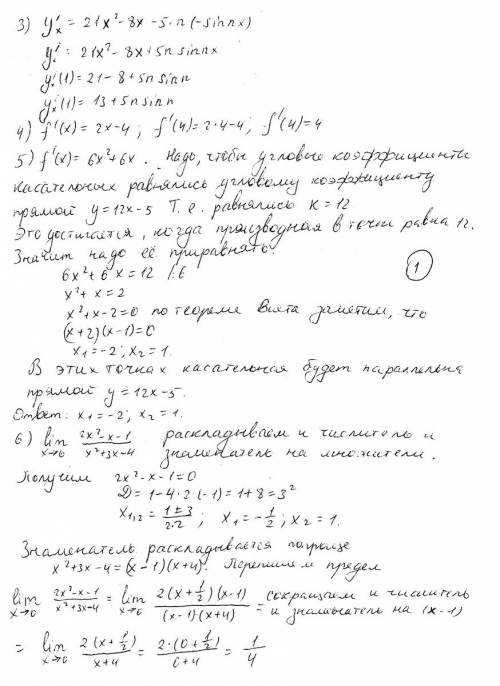 3) y'ₓ = 21x² - 8x - 5·n(-sin nx)
y'ₓ = 21x² - 8x + 5n sin nx
y'ₓ(1) = 21 - 8 + 5n sin n
y'ₓ(1) = 13 + 5n sin n
4) f'(x) = 2x - 4; f'(4) = 2·4 - 4; f'(4) = 4
5) f'(x) = 6x² + 6x. Надо, чтобы угловые коэффициенты
касательных равнялись угловому коэффициенту
прямой y = 12x - 5 Т.е. равнялись K = 12
Это достигается, когда производная в точки равна 12.
Значит надо её приравнять.
6x² + 6x = 12 /:6
x² + x = 2
x² + x - 2 = 0 по теореме Виета заметим, что
(x+2)(x-1) = 0
x₁ = -2; x₂ = 1.
1
В этих точках касательная будет параллельна
прямой y = 12x - 5.
Ответ: x₁ = -2; x₂ = 1.
6) lim x→0 (2x² - x - 1)/(x² + 3x - 4) раскладываем и числитель и
знаменатель на множители.
Получим 2x² - x - 1 = 0
D = 1 - 4·2·(-1) = 1 + 8 = 3²
x₁,₂ = (1 ± 3)/(2·2); x₁ = -1/2; x₂ = 1.
Знаменатель раскладывается попроще
x² + 3x - 4 = (x - 1)(x + 4). Перепишем предел
lim x→0 (2x² - x - 1)/(x² + 3x - 4) = lim x→0 2(x + 1/2)(x - 1)/((x - 1)(x + 4)) = сокращаем и числитель
и знаменатель на (x - 1)
= lim x→0 2(x + 1/2)/(x + 4) = 2·(0 + 1/2)/(0 + 4) = 1/4